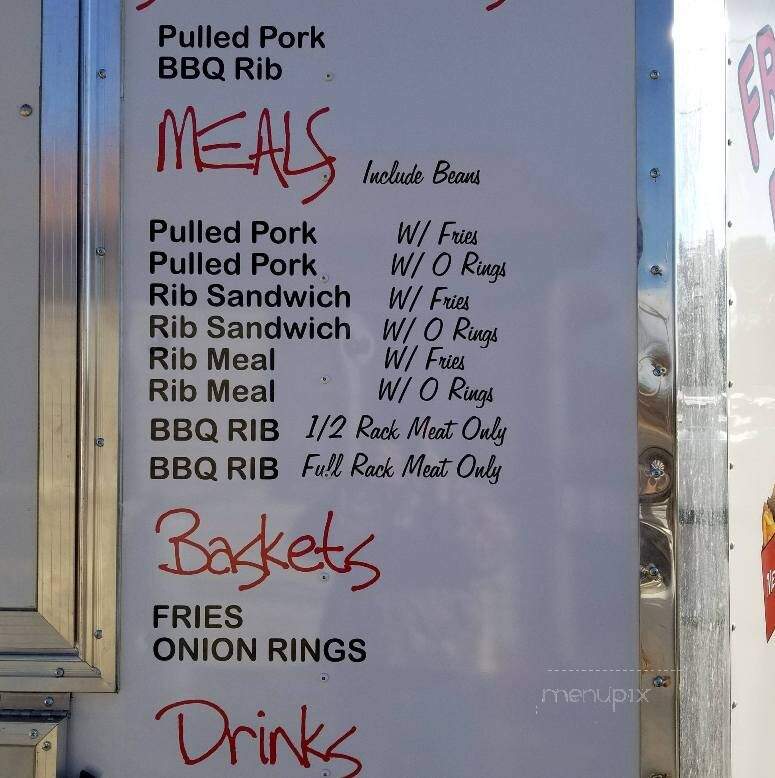 Pulled Pork
BBQ Rib
MEALS Include Beans
Pulled Pork W/ Fries
Pulled Pork W/ O Rings
Rib Sandwich W/ Fries
Rib Sandwich W/ O Rings
Rib Meal W/ Fries
Rib Meal W/ O Rings
BBQ RIB 1/2 Rack Meat Only
BBQ RIB Full Rack Meat Only
Baskets
FRIES
ONION RINGS
menupix
Drinks